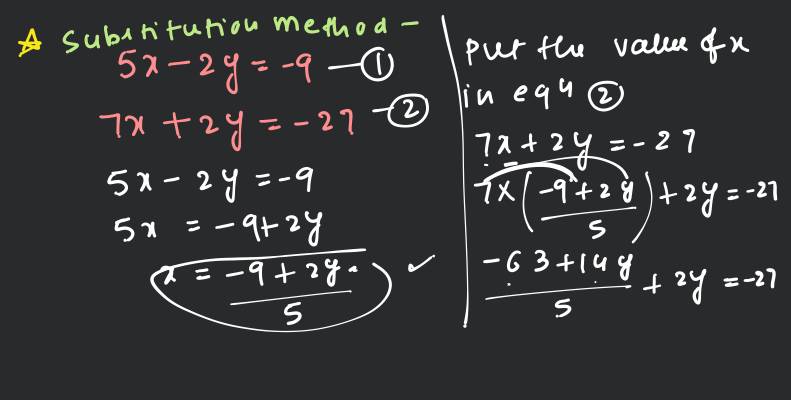 Substitution method -
5x - 2y = -9 — ①
7x + 2y = -27 — ②
5x - 2y = -9
5x = -9 + 2y
x = \frac{-9 + 2y}{5} ✓
Put the value of x
in eqn ②
7x + 2y = -27
7 × \left(\frac{-9 + 2y}{5}\right) + 2y = -27
\frac{-63 + 14y}{5} + 2y = -27